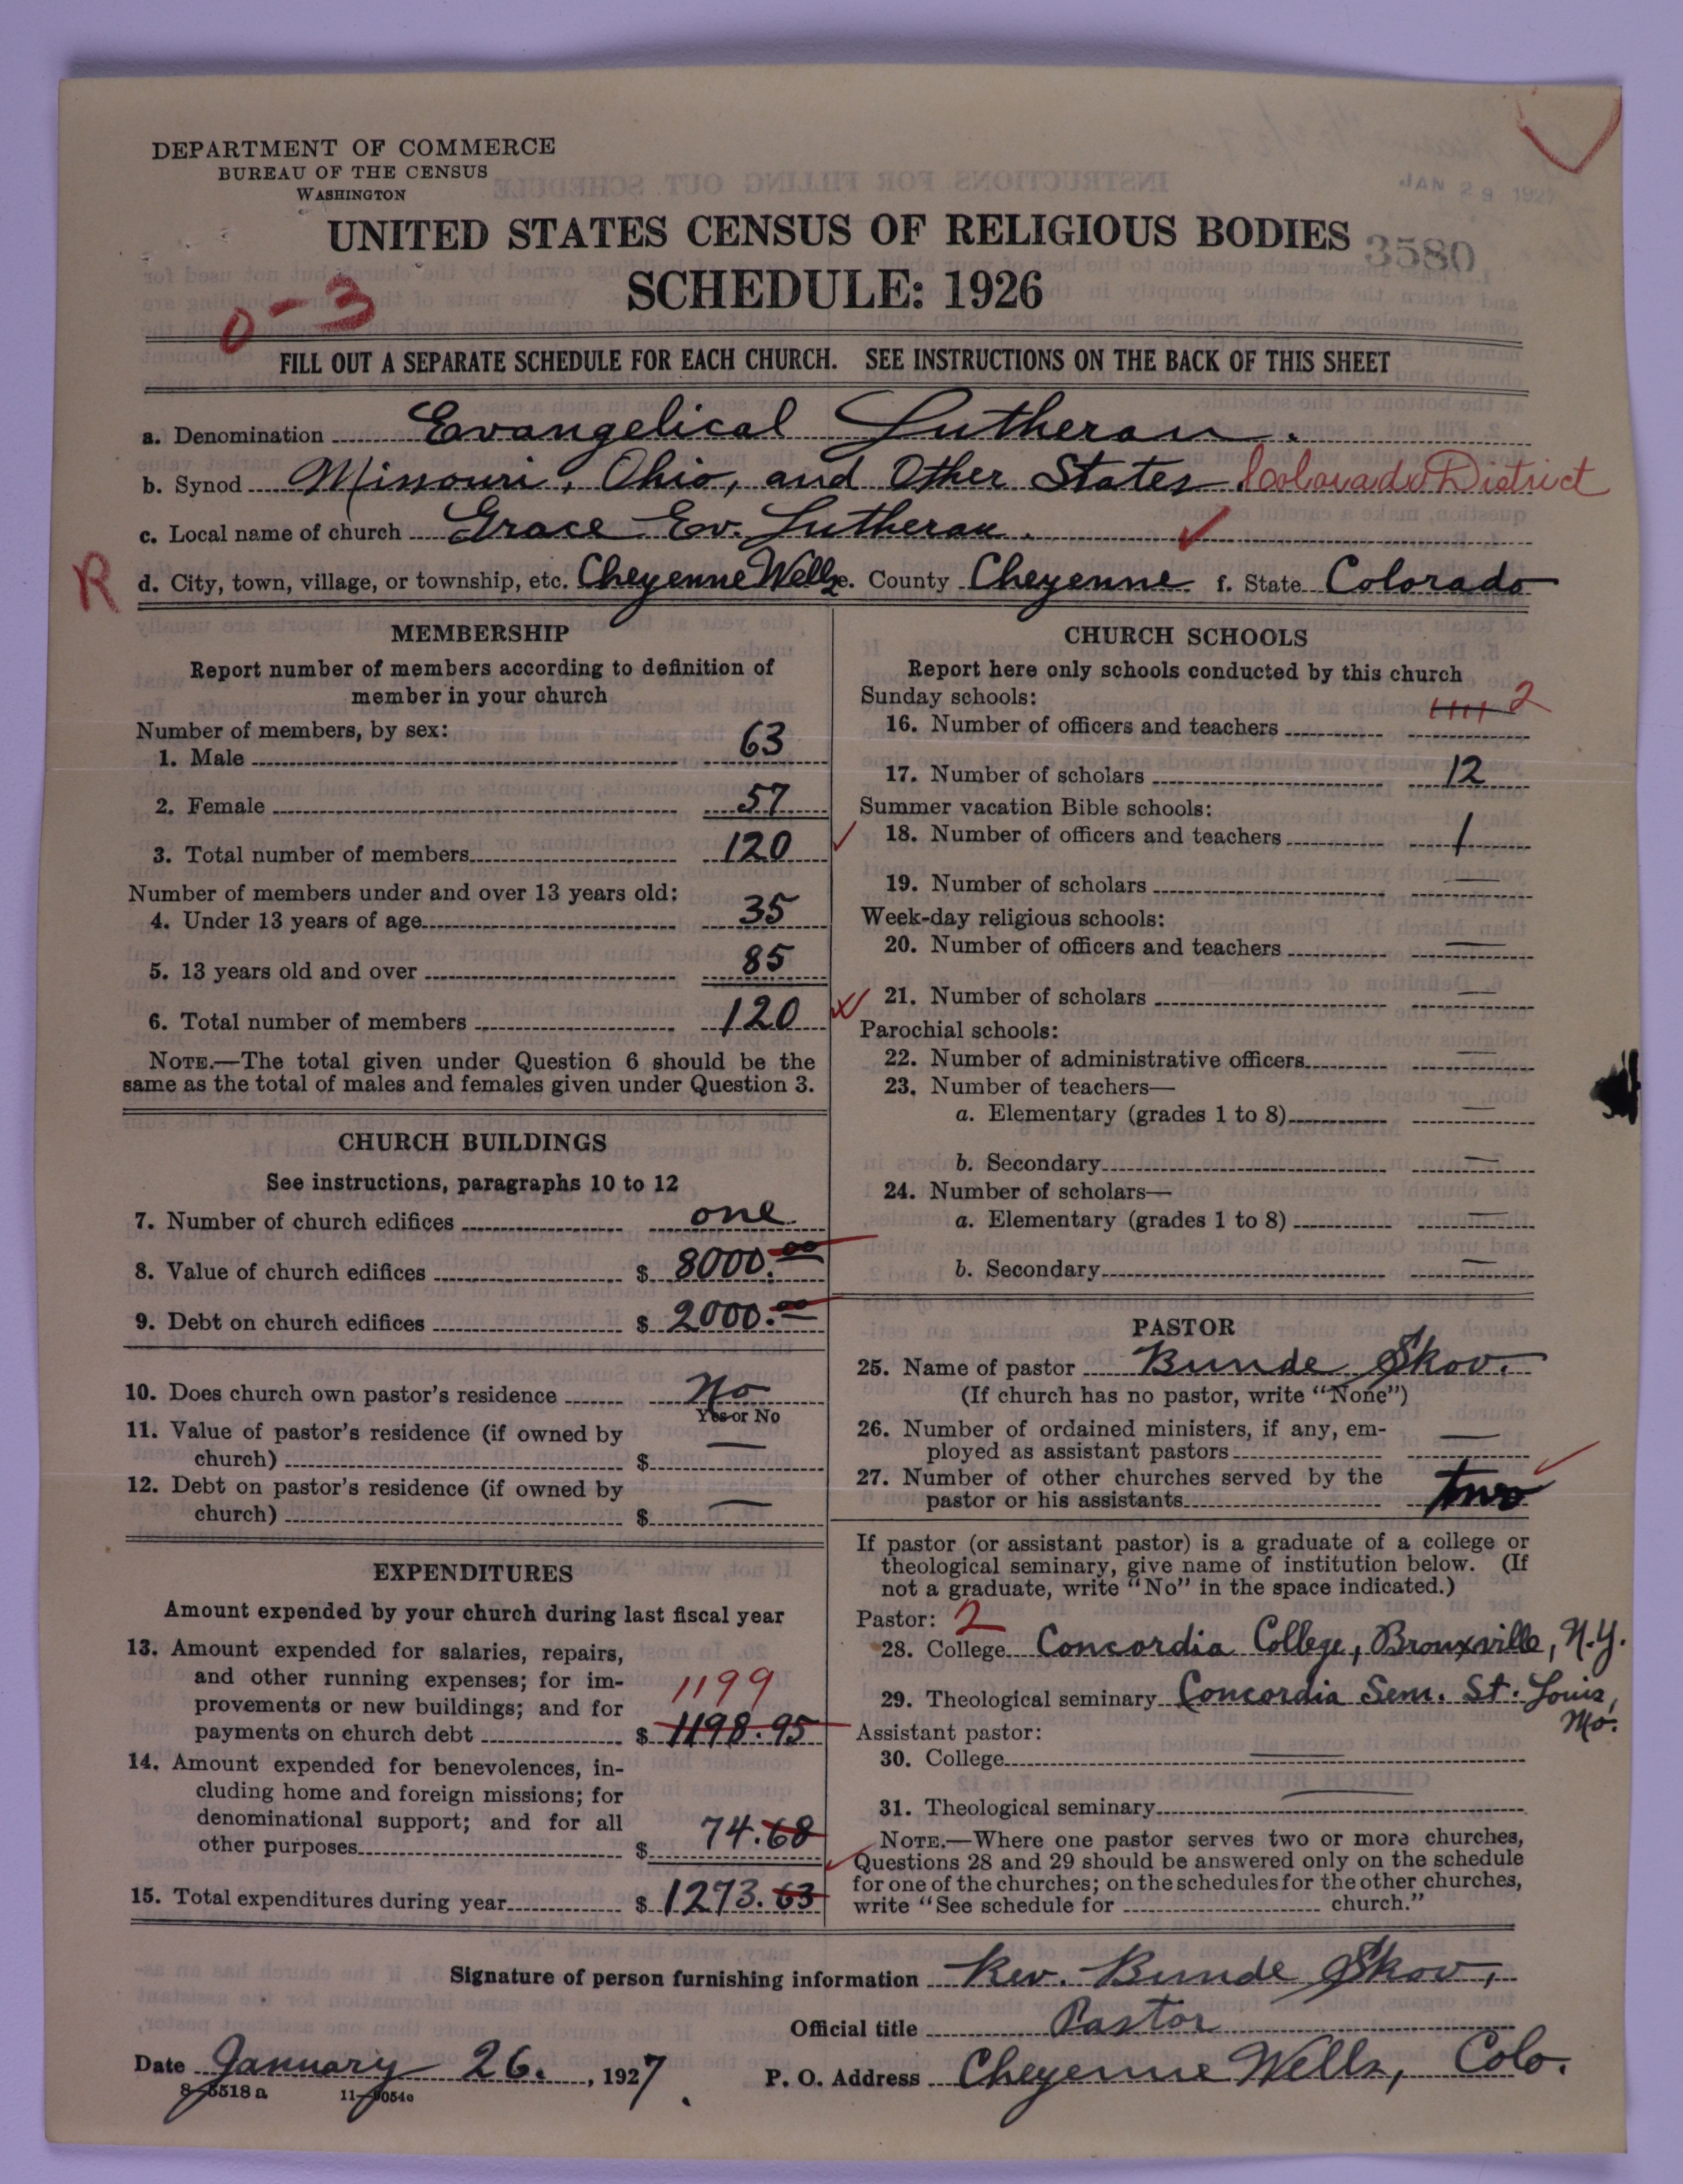 DEPARTMENT OF COMMERCE
BUREAU OF THE CENSUS
WASHINGTON
JAN 29 1927
UNITED STATES CENSUS OF RELIGIOUS BODIES
3580
SCHEDULE: 1926
0-3
FILL OUT A SEPARATE SCHEDULE FOR EACH CHURCH. SEE INSTRUCTIONS ON THE BACK OF THIS SHEET
a. Denomination Evangelical Lutheran.
b. Synod Missouri, Ohio, and Other States. Colorado District
c. Local name of church Grace Ev. Lutheran.
R
d. City, town, village, or township, etc. Cheyenne Wells e. County Cheyenne f. State Colorado
MEMBERSHIP
Report number of members according to definition of
member in your church
Number of members, by sex:
1. Male 63
2. Female 57
3. Total number of members 120
Number of members under and over 13 years old:
4. Under 13 years of age 35
5. 13 years old and over 85
6. Total number of members 120
NOTE.—The total given under Question 6 should be the
same as the total of males and females given under Question 3.
CHURCH BUILDINGS
See instructions, paragraphs 10 to 12
7. Number of church edifices one
8. Value of church edifices $ 8000.00
9. Debt on church edifices $ 2000.00
10. Does church own pastor's residence No
Yes or No
11. Value of pastor's residence (if owned by
church) $ —
12. Debt on pastor's residence (if owned by
church) $ —
EXPENDITURES
Amount expended by your church during last fiscal year
13. Amount expended for salaries, repairs,
and other running expenses; for im-
provements or new buildings; and for
1199
payments on church debt $ 1198.95
14. Amount expended for benevolences, in-
cluding home and foreign missions; for
denominational support; and for all
other purposes $ 74.68
15. Total expenditures during year $ 1273.63
CHURCH SCHOOLS
Report here only schools conducted by this church
Sunday schools:
2
16. Number of officers and teachers
17. Number of scholars 12
Summer vacation Bible schools:
18. Number of officers and teachers 1
19. Number of scholars —
Week-day religious schools:
20. Number of officers and teachers —
21. Number of scholars —
Parochial schools:
22. Number of administrative officers —
23. Number of teachers—
a. Elementary (grades 1 to 8) —
b. Secondary —
24. Number of scholars—
a. Elementary (grades 1 to 8) —
b. Secondary —
PASTOR
25. Name of pastor Bunde Skov.
(If church has no pastor, write "None")
26. Number of ordained ministers, if any, em-
ployed as assistant pastors —
27. Number of other churches served by the
pastor or his assistants two
If pastor (or assistant pastor) is a graduate of a college or
theological seminary, give name of institution below. (If
not a graduate, write "No" in the space indicated.)
Pastor: 2
28. College Concordia College, Bronxville, N.Y.
29. Theological seminary Concordia Sem. St. Louis,
Mo.
Assistant pastor:
30. College —
31. Theological seminary —
NOTE.—Where one pastor serves two or more churches,
Questions 28 and 29 should be answered only on the schedule
for one of the churches; on the schedules for the other churches,
write "See schedule for church."
Signature of person furnishing information Rev. Bunde Skov,
Official title Pastor
Date January 26., 1927. P. O. Address Cheyenne Wells, Colo.
8-5518 a 11-9054c